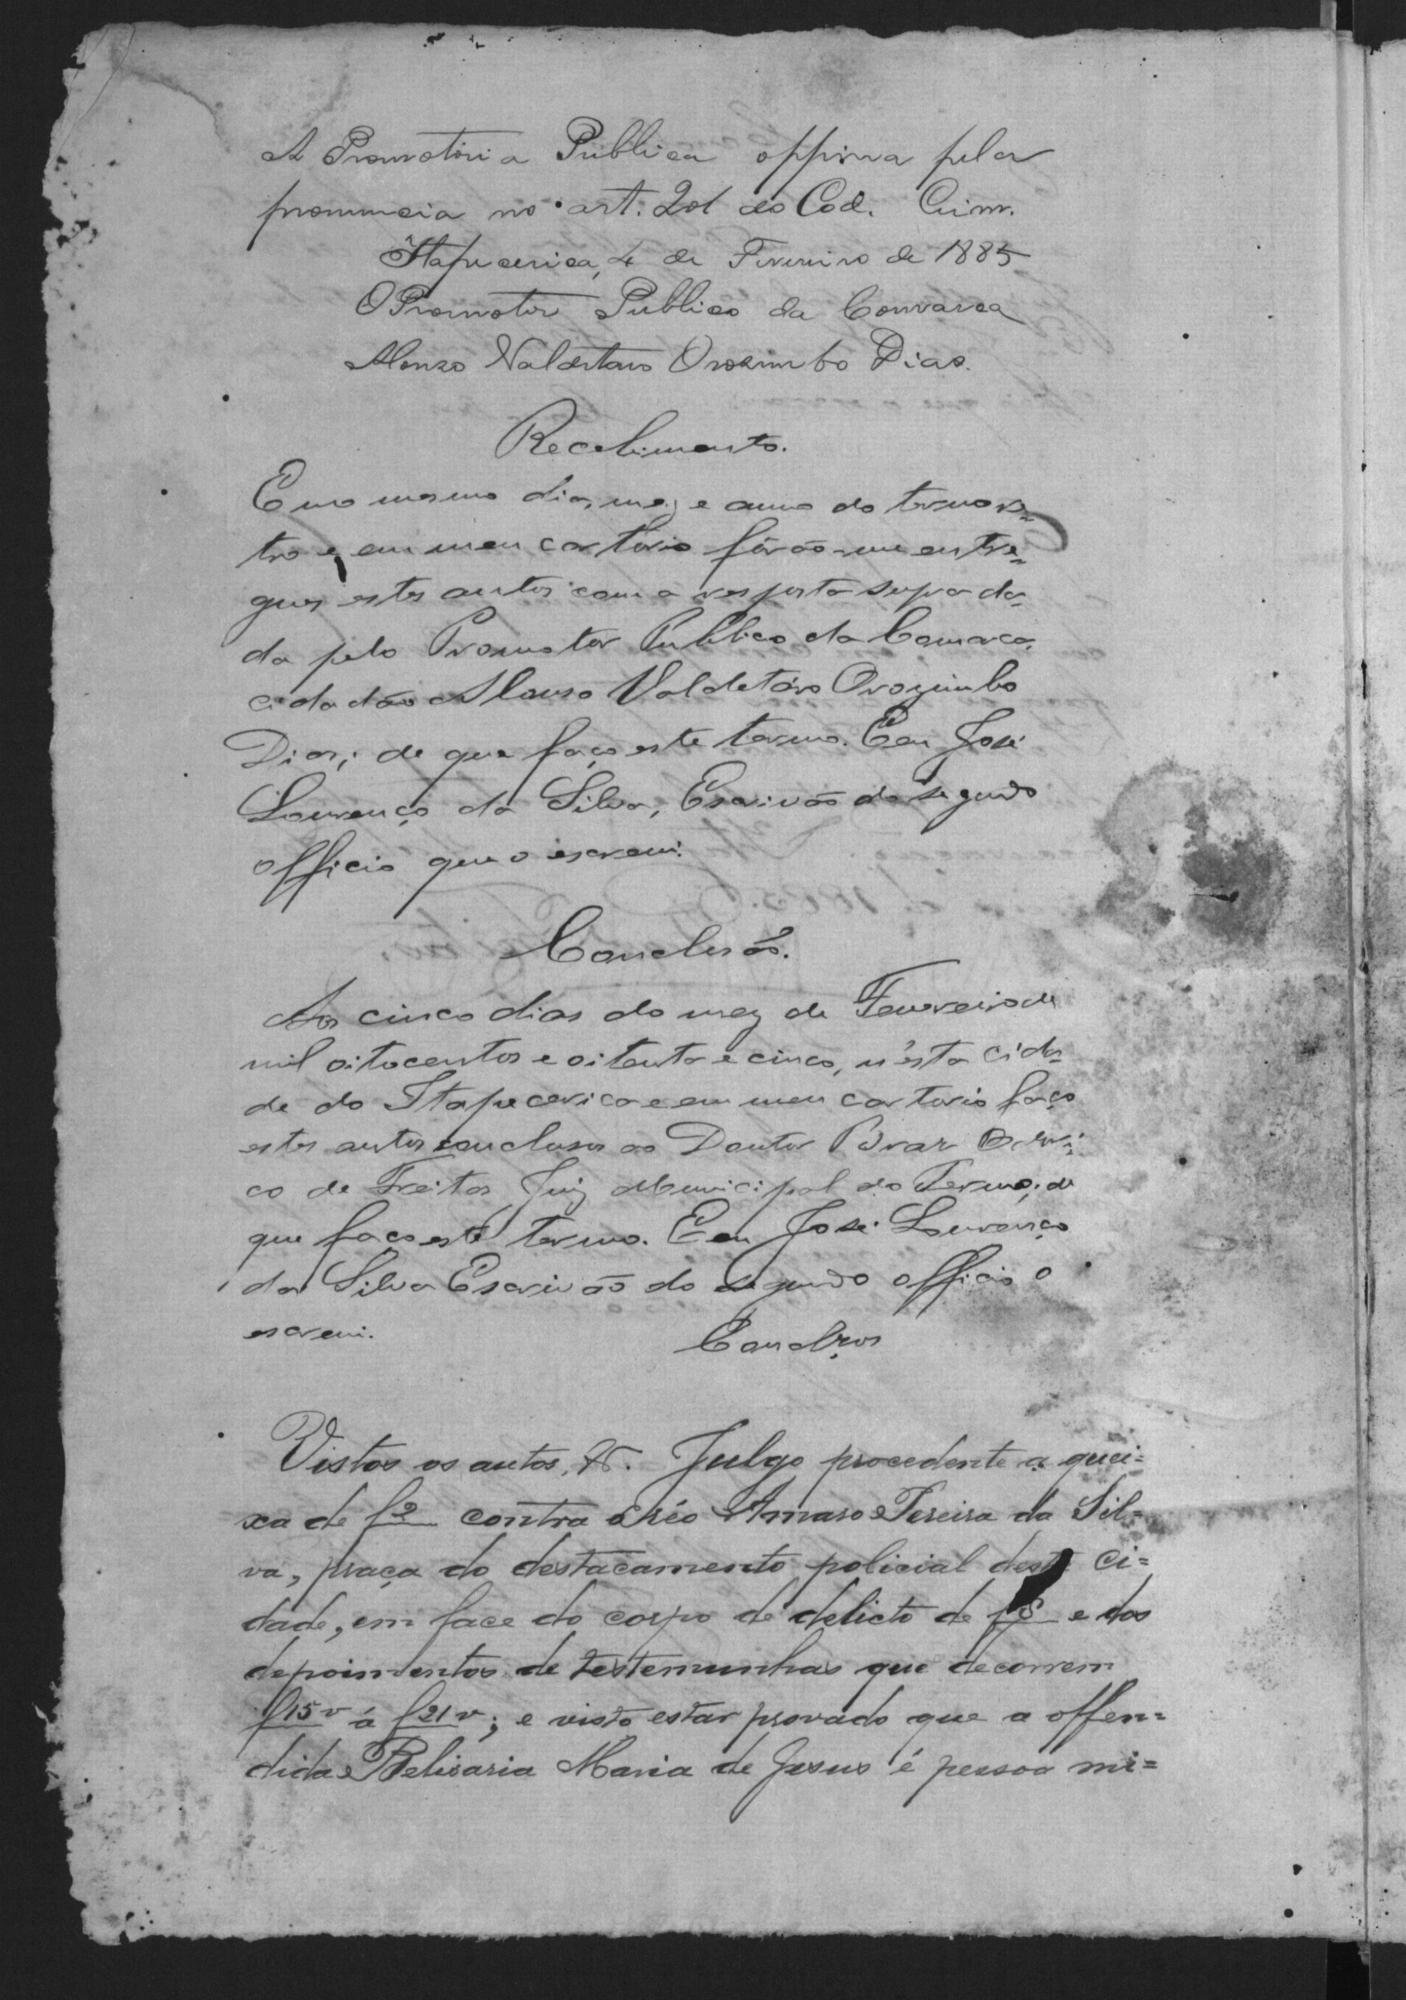 A Promotoria Publica oppina pela
pronuncia no art. 201 do Cod. Crim.
Itapecerica, 4 de Fevereiro de 1885
O Promotor Publico da Comarca
Alonso Valdetaro Orosimbo Dias.
Recebimento.
E no mesmo dia, mez e anno do termo re=
tro e em meu cartorio fôrão-me entre=
gues estes autos com a resposta supra da=
da pelo Promotor Publico da Comarca
cidadão Alonso Valdetáro Orozimbo
Dias; de que faço este termo. Eeu José
Lourenço da Silva, Escrivão do segundo
officio que o escrevi.
Conclusão.
Aos cinco dias do mez de Fevereiro de
mil oitocentos e oitenta e cinco, n'ésta cida=
de do Itapecerica e em meu cartorio faço
estes autos conclusos ao Doutor
co de Freitas Juiz Municipal do Termo; de
que faço este termo. Eeu José Lourenço
da Silva Escrivão do segundo officio o
escrevi. Conclzos
Vistos os autos, &. Julgo procedente a quei=
xa de f2 contra o réo Amaro Pereira da Sil=
va, praça do destacamento policial desta ci=
dade, em face do corpo de delicto de f8 e dos
depoimentos de testemunhas que decorrem
f15v á f21v; e visto estar provado que a offen=
dida Belisaria Maria de Jesus é pessoa mi=